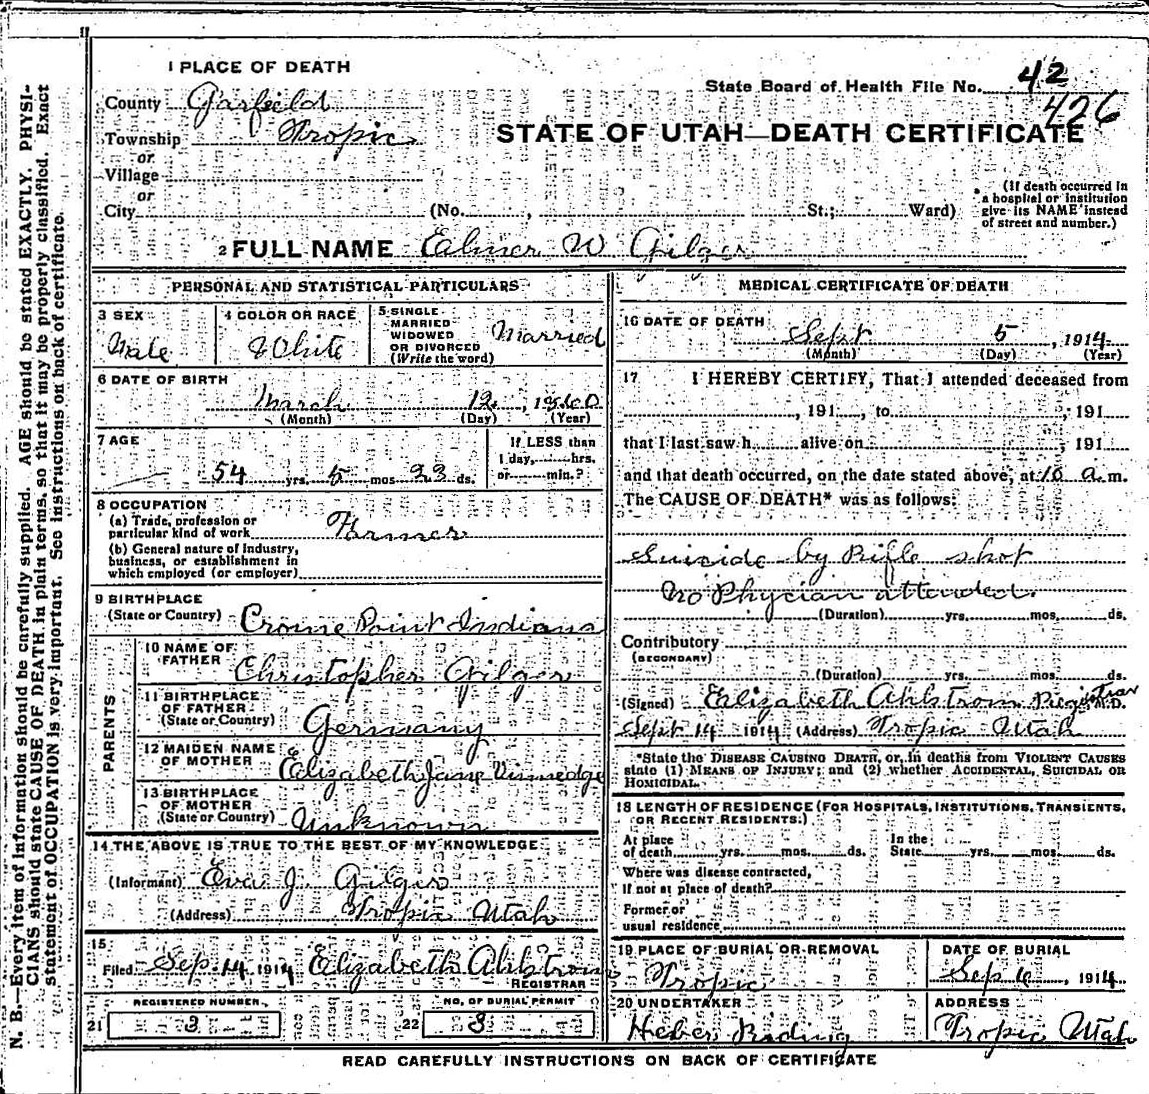 1 PLACE OF DEATH
County Garfield
Township Tropic
or
Village
or
City (No. , St.; Ward)
State Board of Health File No. 42
426
STATE OF UTAH—DEATH CERTIFICATE
(If death occurred in
a hospital or institution
give its NAME instead
of street and number.)
2 FULL NAME Elmer W Gilger
PERSONAL AND STATISTICAL PARTICULARS
3 SEX
Male
4 COLOR OR RACE
White
5 SINGLE
MARRIED
WIDOWED
OR DIVORCED
(Write the word)
Married
6 DATE OF BIRTH
March 12, 1860
(Month) (Day) (Year)
7 AGE
54 yrs. 5 mos 23 ds.
If LESS than
1 day, hrs.
or min.?
8 OCCUPATION
(a) Trade, profession or
particular kind of work Farmer
(b) General nature of industry,
business, or establishment in
which employed (or employer)
9 BIRTHPLACE
(State or Country) Crown Point Indiana
PARENTS
10 NAME OF
FATHER Christopher Gilger
11 BIRTHPLACE
OF FATHER
(State or Country) Germany
12 MAIDEN NAME
OF MOTHER Elizabeth Jane
13 BIRTHPLACE
OF MOTHER
(State or Country) Unknown
14 THE ABOVE IS TRUE TO THE BEST OF MY KNOWLEDGE
(Informant) Eva J. Gilger
(Address) Tropic Utah
15
Filed Sep. 14 1914 Elizabeth Ahlstrom
REGISTRAR
REGISTERED NUMBER
21 3
NO. OF BURIAL PERMIT
22 3
MEDICAL CERTIFICATE OF DEATH
16 DATE OF DEATH
Sept 5, 1914
(Month) (Day) (Year)
17 I HEREBY CERTIFY, That I attended deceased from
, 191 , to , 191
that I last saw h alive on , 191
and that death occurred, on the date stated above, at 10 a.m.
The CAUSE OF DEATH* was as follows:
Suicide by Rifle shot
No Phycian attended.
(Duration) yrs. mos. ds.
Contributory
(SECONDARY)
(Duration) yrs. mos. ds.
(Signed) Elizabeth Ahlstrom Registrar M.D.
Sept 14 1914 (Address) Tropic Utah
*State the DISEASE CAUSING DEATH, or, in deaths from VIOLENT CAUSES
state (1) MEANS OF INJURY; and (2) whether ACCIDENTAL, SUICIDAL OR
HOMICIDAL.
18 LENGTH OF RESIDENCE (FOR HOSPITALS, INSTITUTIONS, TRANSIENTS,
OR RECENT RESIDENTS.)
At place
of death yrs. mos. ds.
In the
State yrs. mos. ds.
Where was disease contracted,
If not at place of death?
Former or
usual residence
19 PLACE OF BURIAL OR REMOVAL
Tropic
DATE OF BURIAL
Sep 6, 1914
20 UNDERTAKER
Heber
ADDRESS
Tropic Utah
READ CAREFULLY INSTRUCTIONS ON BACK OF CERTIFICATE
N. B.—Every item of information should be carefully supplied. AGE should be stated EXACTLY. PHYSI-
CIANS should state CAUSE OF DEATH in plain terms, so that it may be properly classified. Exact
statement of OCCUPATION is very important. See instructions on back of certificate.